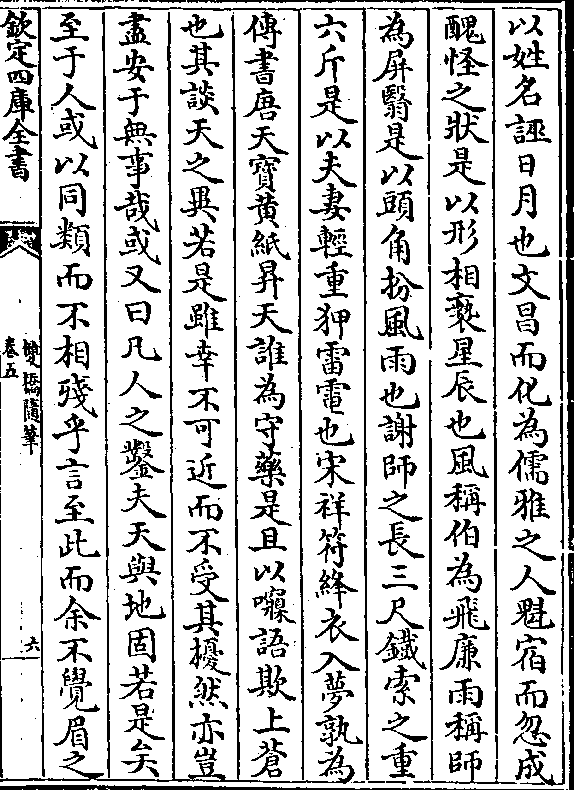 以姓名誣日月也文昌而化為儒雅之人魁宿而忽成
醜怪之狀是以形相褻星辰也風稱伯為飛廉雨稱師
為屏翳是以頭角扮風雨也謝師之長三尺鐵索之重
六斤是以夫妻輕重狎雷電也宋祥符絳衣入夢孰為
傳書唐天寶黄紙昇天誰為守藥是且以囈語欺上蒼
也其談天之異若是雖幸不可近而不受其擾然亦豈
盡安于無事哉或又曰凡人之鑿夫天與地固若是矣
至于人或以同類而不相殘乎言至此而余不覺眉之
欽定四庫全書
雙橋隨筆
卷五
六